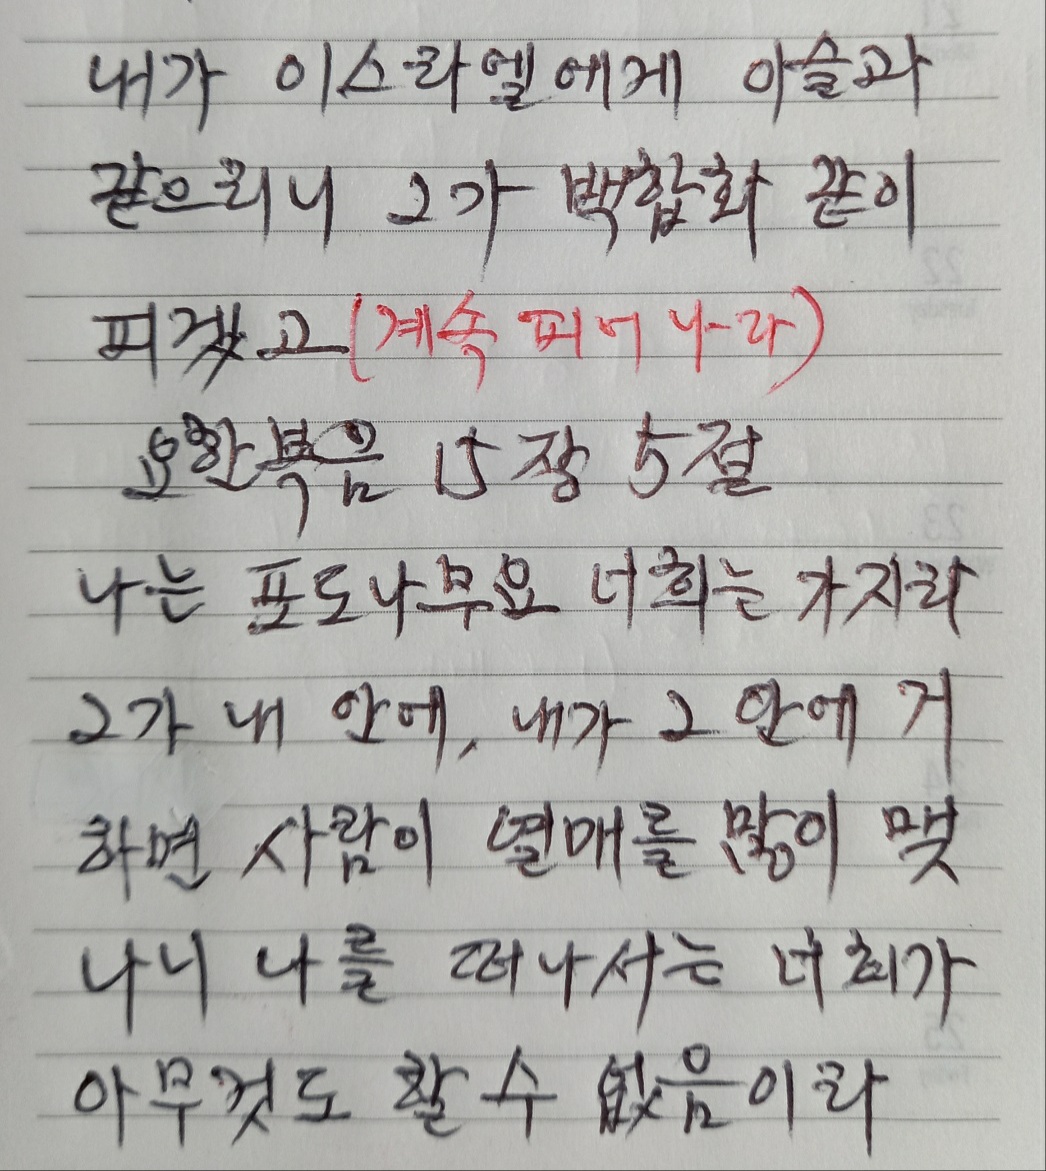 내가 이스라엘에게 이슬과
같으리니 그가 백합화 같이
피겠고 (계속 피어 나라)
요한복음 15장 5절
나는 포도나무요 너희는 가지라
그가 내 안에, 내가 그 안에 거
하면 사람이 열매를 많이 맺
나니 나를 떠나서는 너희가
아무것도 할 수 없음이라